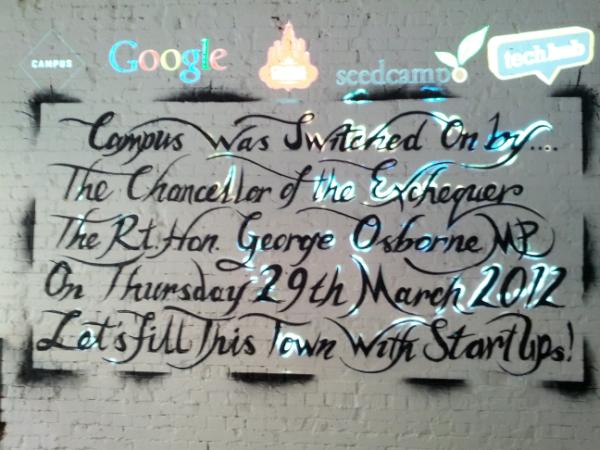 CAMPUS Google seedcamp techhub
Campus Was Switched On by....
The Chancellor of the Exchequer
The Rt. Hon. George Osborne MP
On Thursday 29th March 2012
Let's Fill This Town With StartUps!